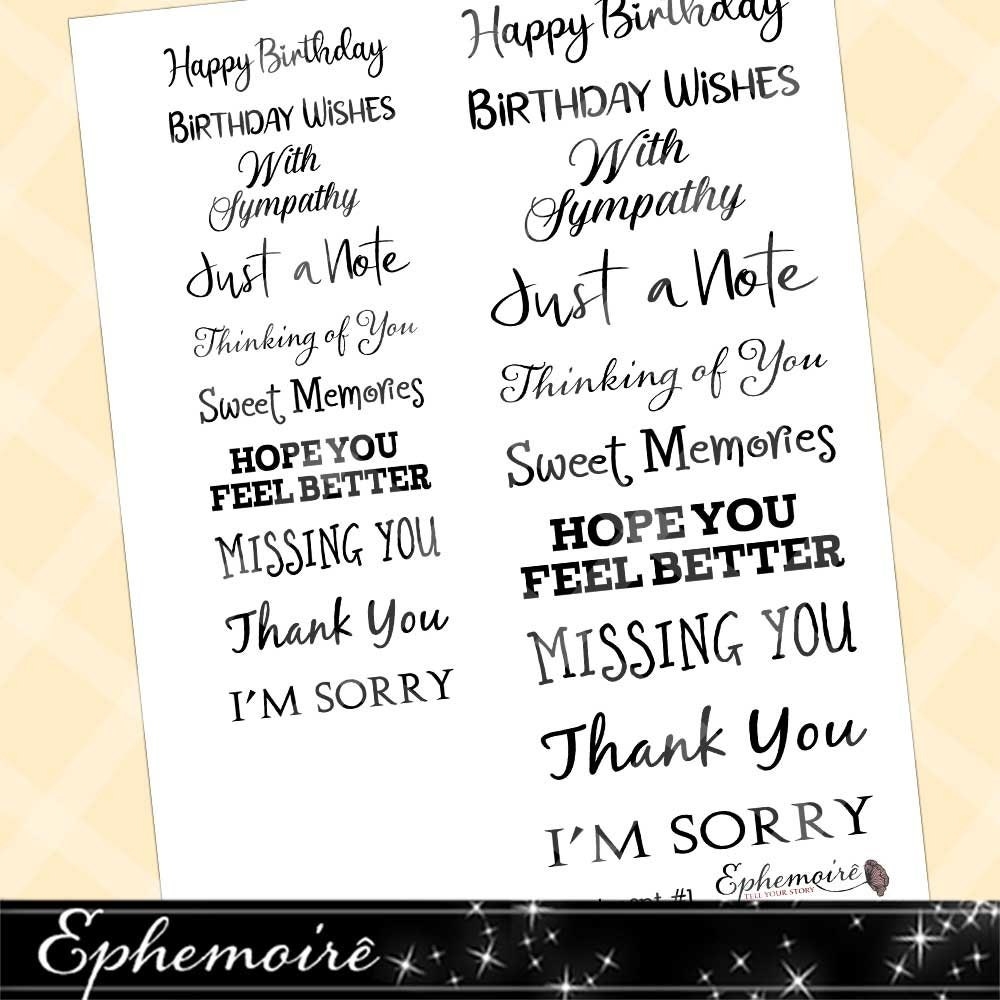 Happy Birthday
BiRTHDAY WiSHES
With
Sympathy
Just a Note
Thinking of You
Sweet Memories
HOPE YOU
FEEL BETTER
MISSING YOU
Thank You
I'M SORRY
Happy Birthday
BiRTHDAY WiSHES
With
Sympathy
Just a Note
Thinking of You
Sweet Memories
HOPE YOU
FEEL BETTER
MISSING YOU
Thank You
I'M SORRY
Ephemoirê
TELL YOUR STORY
#1
Ephemoirê